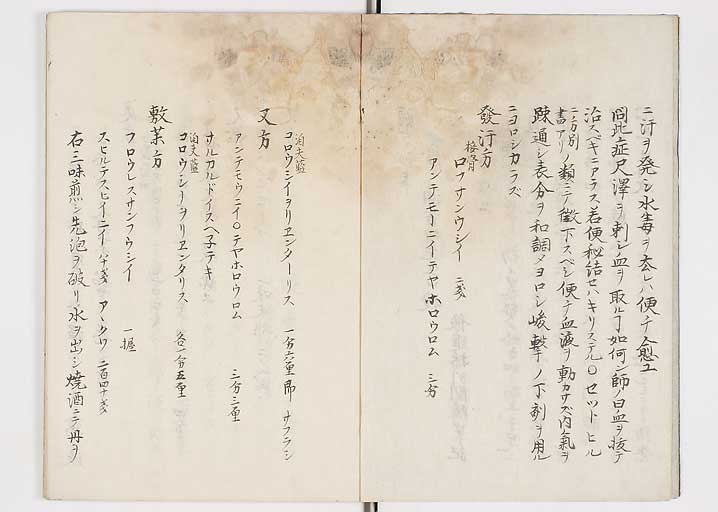 ニ汗ヲ発シ水毒ヲ去レハ便チ愈ユ
問此症尺澤ヲ刺シ血ヲ取ル丁如何ン師ノ曰血ヲ
治スベキニアラス若便秘結セハキリステル〇セツトヒル
ニ方別書アリノ類ニテ徴下スベシ便チ血液ヲ動カサズ内氣ヲ
疎通シ表分ヲ和調メヨロシ峻撃ノ下剤ヲ用ル
ニヨロシカラズ
發汗方
接骨ロフサンウシイ 二戔
アンテモーニイテヤホロウロム 三分
又方
泊夫藍コロウシイヲリエンターリス 一分六厘 即サフラン
アンテモウニイ〇テヤホロウロム 三分三厘
サルカルドイスヘ子テキ
泊夫藍コロウシーヲリエンタリス 各一分五厘
敷茱方
フロウレスサンフウシイ 一握
スヒルテスヒイニイ 八十戔 アヽクワ 二百四十戔
右三味煎シ先泡ヲ破リ水ヲ出シ焼酒ニテ丹ヲ